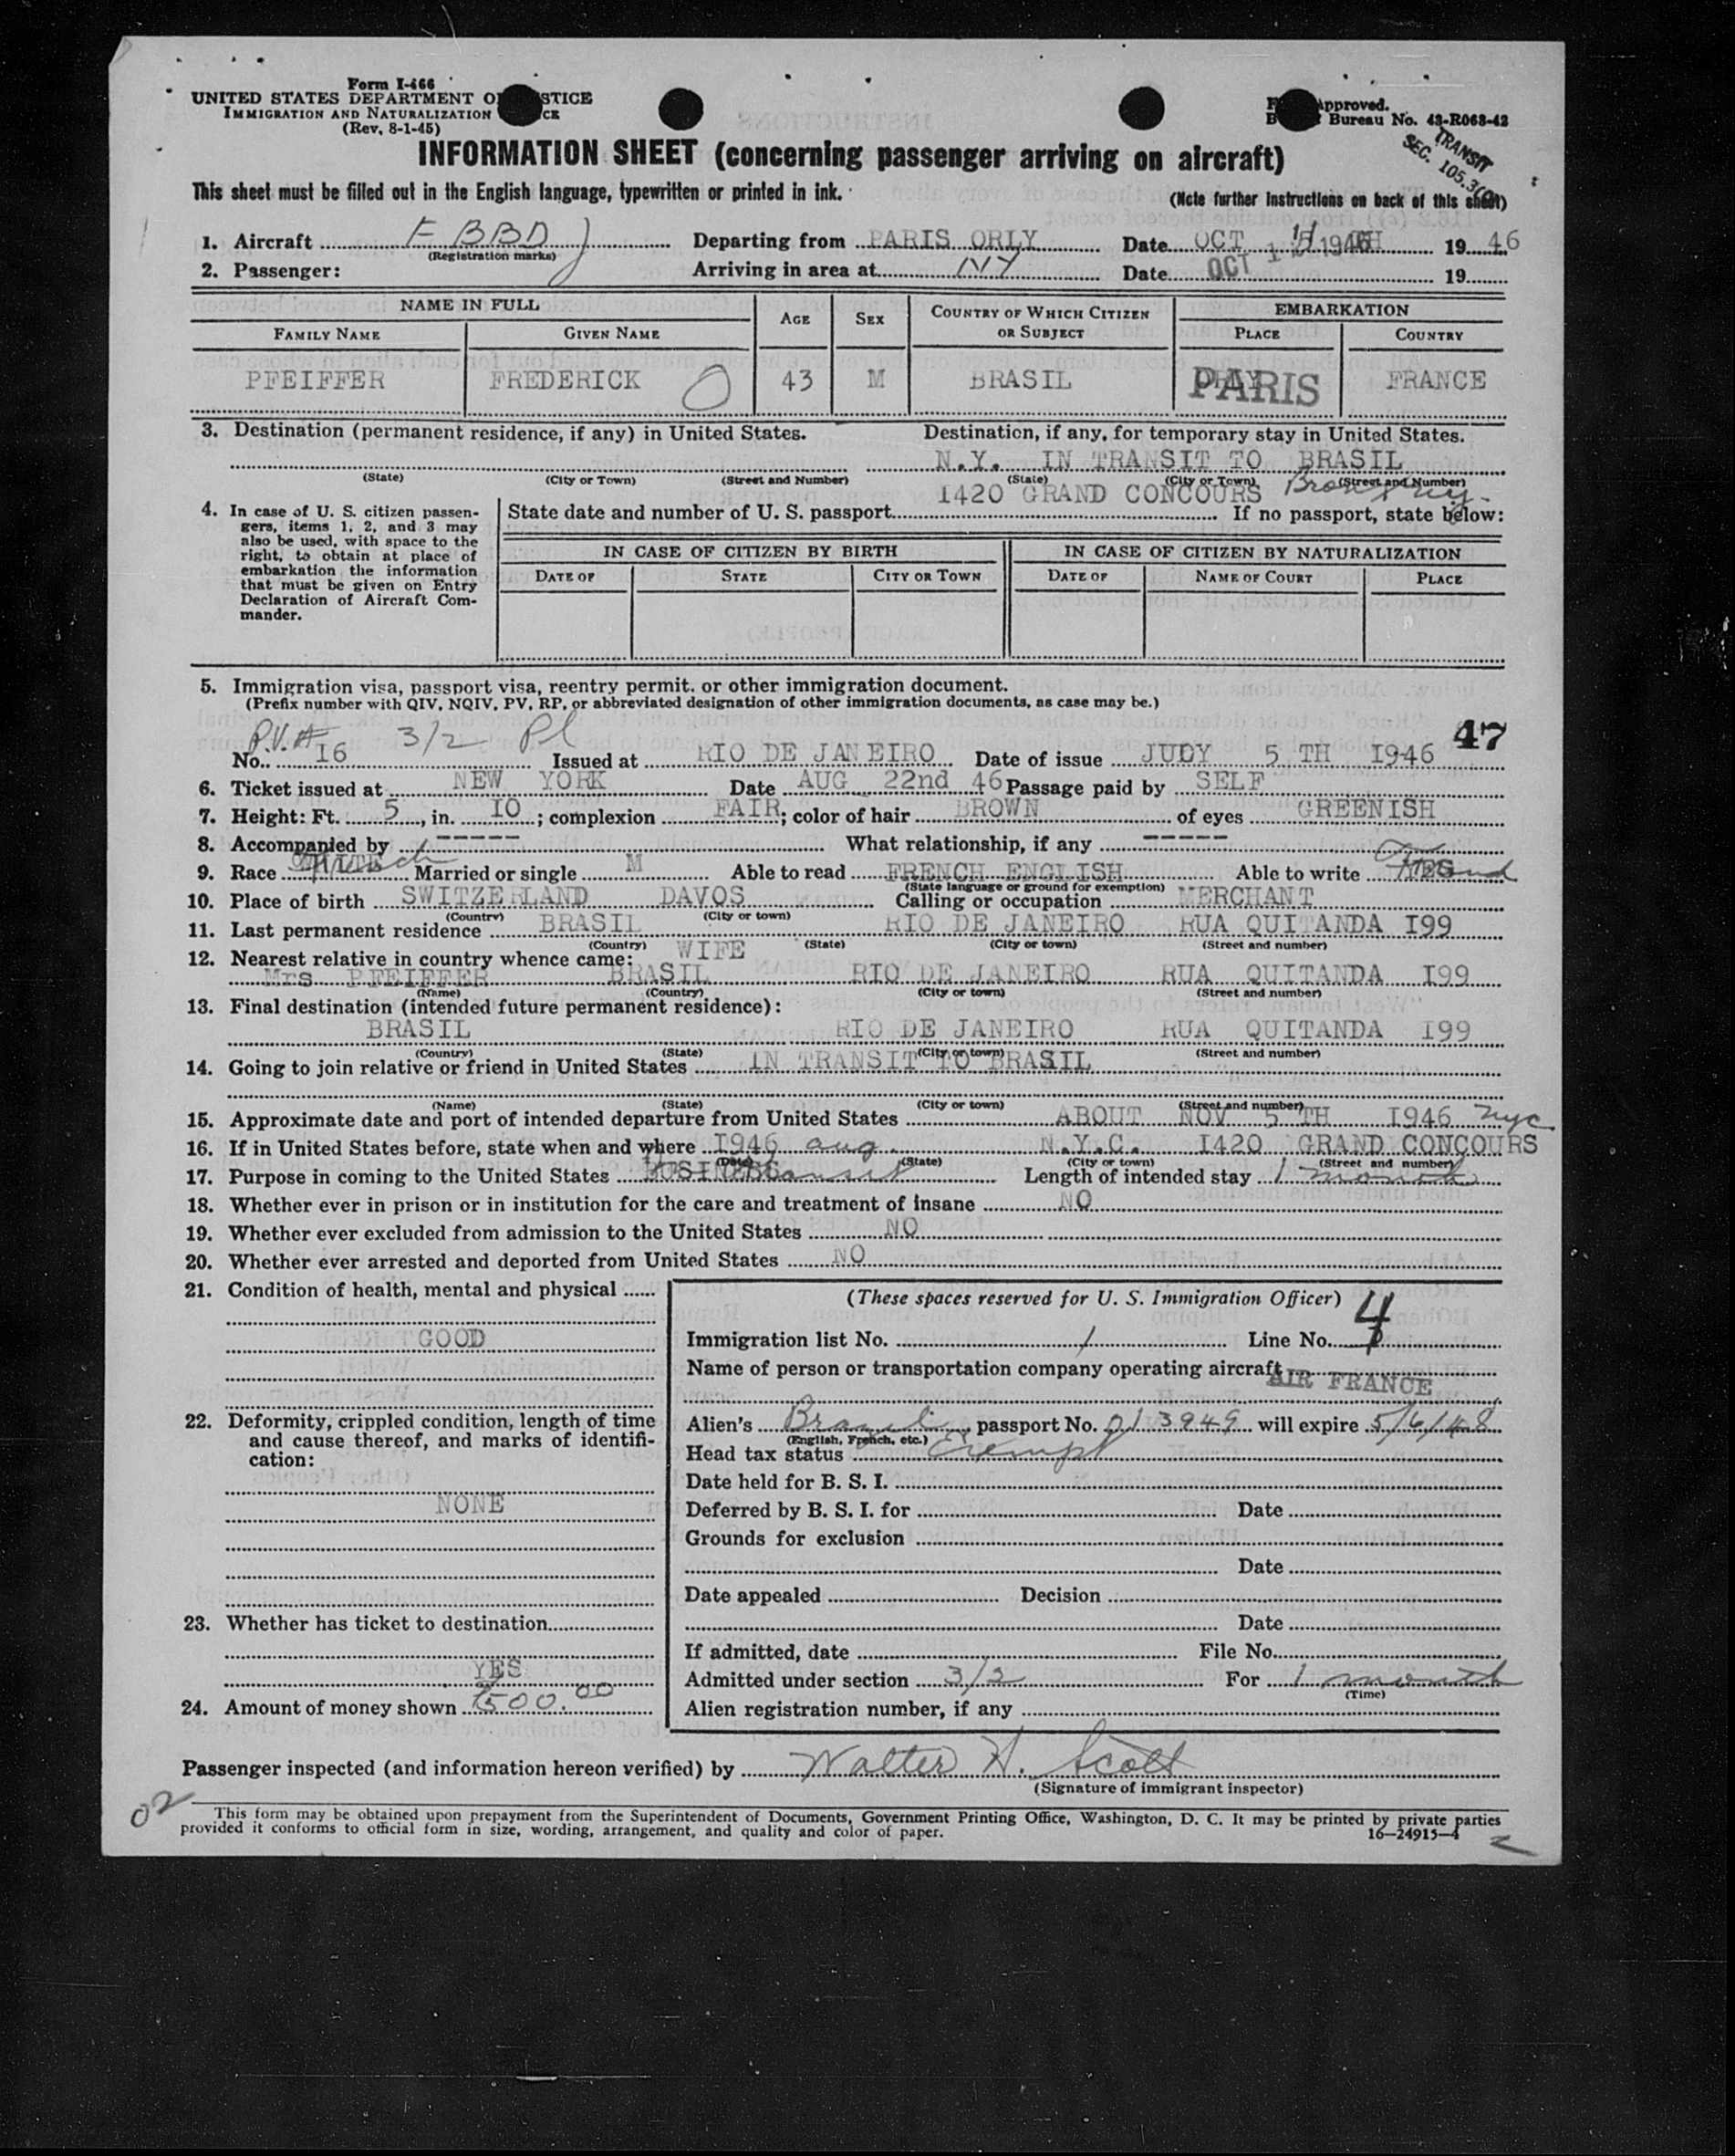 Form I-466
UNITED STATES DEPARTMENT O STICE
IMMIGRATION AND NATURALIZATION CE
(Rev. 8-1-45)
Approved.
Bureau No. 43-R068-42
TRANSIT
SEC. 105.3
INFORMATION SHEET (concerning passenger arriving on aircraft)
This sheet must be filled out in the English language, typewritten or printed in ink.
(Note further instructions on back of this sheet)
1. Aircraft F BBDJ Departing from PARIS ORLY Date OCT 1946 1946
(Registration marks)
2. Passenger: Arriving in area at NY Date OCT 19
NAME IN FULL AGE SEX COUNTRY OF WHICH CITIZEN OR SUBJECT EMBARKATION
FAMILY NAME GIVEN NAME PLACE COUNTRY
PFEIFFER FREDERICK O 43 M BRASIL PARIS FRANCE
3. Destination (permanent residence, if any) in United States. Destination, if any, for temporary stay in United States.
N.Y. IN TRANSIT TO BRASIL
(State) (City or Town) (Street and Number) (State) (City or Town) (Street and Number)
I420 GRAND CONCOURS Bronx ny.
4. In case of U. S. citizen passengers, items 1, 2, and 3 may also be used, with space to the right, to obtain at place of embarkation the information that must be given on Entry Declaration of Aircraft Commander.
State date and number of U. S. passport If no passport, state below:
IN CASE OF CITIZEN BY BIRTH IN CASE OF CITIZEN BY NATURALIZATION
DATE OF STATE CITY OR TOWN DATE OF NAME OF COURT PLACE
5. Immigration visa, passport visa, reentry permit. or other immigration document.
(Prefix number with QIV, NQIV, PV, RP, or abbreviated designation of other immigration documents, as case may be.)
P.V.# 3/2 Pl 47
No. I6 Issued at RIO DE JANEIRO Date of issue JUDY 5 TH I946
6. Ticket issued at NEW YORK Date AUG 22nd 46 Passage paid by SELF
7. Height: Ft. 5, in. IO; complexion FAIR; color of hair BROWN of eyes GREENISH
8. Accompanied by ----- What relationship, if any -----
9. Race Married or single M Able to read FRENCH ENGLISH Able to write YES
(State language or ground for exemption)
10. Place of birth SWITZERLAND DAVOS Calling or occupation MERCHANT
(Country) (City or town)
11. Last permanent residence BRASIL RIO DE JANEIRO RUA QUITANDA I99
(Country) (State) (City or town) (Street and number)
12. Nearest relative in country whence came: WIFE
Mrs PFEIFFER BRASIL RIO DE JANEIRO RUA QUITANDA I99
(Name) (Country) (City or town) (Street and number)
13. Final destination (intended future permanent residence):
BRASIL RIO DE JANEIRO RUA QUITANDA I99
(Country) (State) (City or town) (Street and number)
14. Going to join relative or friend in United States IN TRANSIT TO BRASIL
(Name) (State) (City or town) (Street and number)
15. Approximate date and port of intended departure from United States ABOUT NOV 5 TH I946 nyc
16. If in United States before, state when and where I946 aug N.Y.C. I420 GRAND CONCOURS
(Date) (State) (City or town) (Street and number)
17. Purpose in coming to the United States BUSINESS transit Length of intended stay 1 month
18. Whether ever in prison or in institution for the care and treatment of insane NO
19. Whether ever excluded from admission to the United States NO
20. Whether ever arrested and deported from United States NO
21. Condition of health, mental and physical
GOOD
22. Deformity, crippled condition, length of time and cause thereof, and marks of identification:
NONE
23. Whether has ticket to destination
YES
24. Amount of money shown 500.00
(These spaces reserved for U. S. Immigration Officer)
Immigration list No. 1 Line No. 4
Name of person or transportation company operating aircraft
AIR FRANCE
Alien's Brazil passport No. 013949 will expire 5/6/48
(English, French, etc.)
Head tax status Exempt
Date held for B. S. I.
Deferred by B. S. I. for Date
Grounds for exclusion
Date
Date appealed Decision
Date
If admitted, date File No.
Admitted under section 3/2 For 1 month
(Time)
Alien registration number, if any
Passenger inspected (and information hereon verified) by Walter H. Scott
(Signature of immigrant inspector)
02
This form may be obtained upon prepayment from the Superintendent of Documents, Government Printing Office, Washington, D. C. It may be printed by private parties
provided it conforms to official form in size, wording, arrangement, and quality and color of paper. 16—24915-4